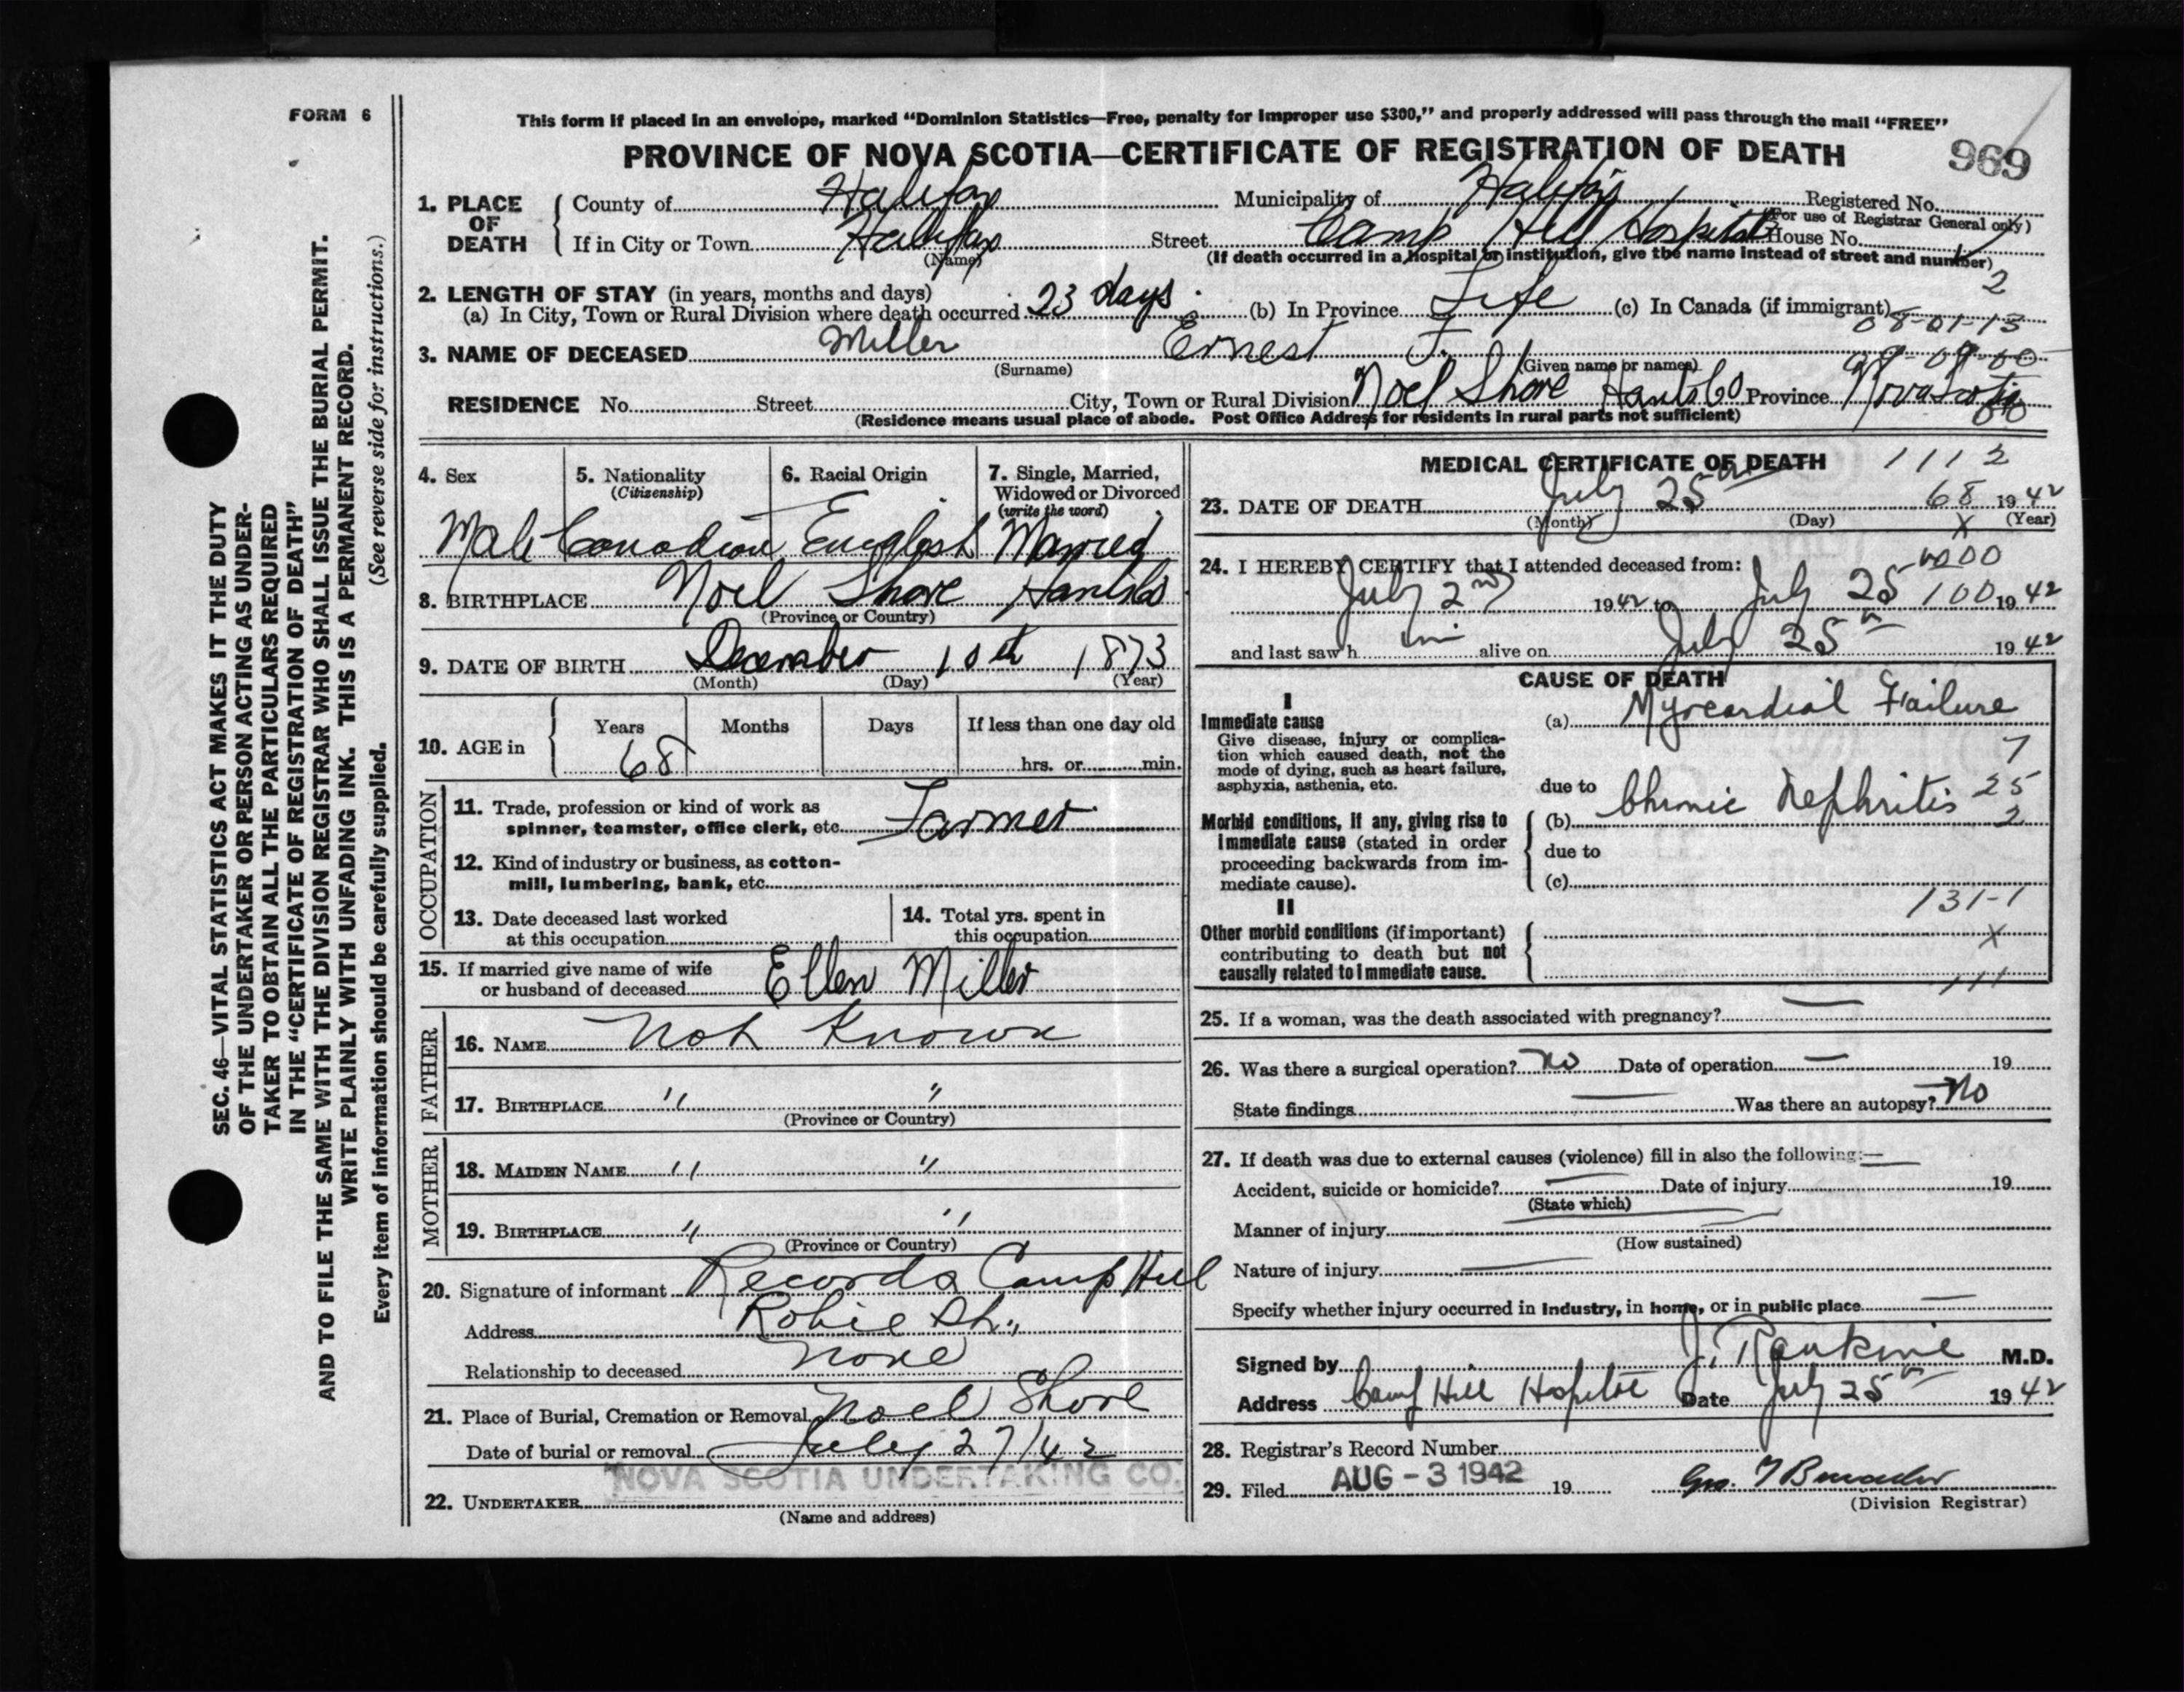 FORM 6
This form if placed in an envelope, marked “Dominion Statistics—Free, penalty for improper use $300,” and properly addressed will pass through the mail “FREE”
PROVINCE OF NOVA SCOTIA—CERTIFICATE OF REGISTRATION OF DEATH
969
1. PLACE OF DEATH
County of Halifax Municipality of Halifax Registered No.
(For use of Registrar General only)
If in City or Town Halifax Street Camp Hill Hospital House No.
(Name) (If death occurred in a hospital or institution, give the name instead of street and number)
2
2. LENGTH OF STAY (in years, months and days)
(a) In City, Town or Rural Division where death occurred 23 days. (b) In Province Life (c) In Canada (if immigrant)
08-01-13
3. NAME OF DECEASED Miller Ernest F.
(Surname) (Given name or names)
09-09-00
RESIDENCE No. Street City, Town or Rural Division Noel Shore Hants Co Province Nova Scotia
00
(Residence means usual place of abode. Post Office Address for residents in rural parts not sufficient)
4. Sex
Male
5. Nationality
(Citizenship)
Canadian
6. Racial Origin
English
7. Single, Married,
Widowed or Divorced
(write the word)
Married
8. BIRTHPLACE Noel Shore Hants Co
(Province or Country)
9. DATE OF BIRTH December 10th 1873
(Month) (Day) (Year)
10. AGE in
Years Months Days If less than one day old
68 hrs. or min.
OCCUPATION
11. Trade, profession or kind of work as
spinner, teamster, office clerk, etc. Farmer
12. Kind of industry or business, as cotton-
mill, lumbering, bank, etc.
13. Date deceased last worked
at this occupation
14. Total yrs. spent in
this occupation
15. If married give name of wife
or husband of deceased Ellen Miller
FATHER
16. NAME Not Known
17. BIRTHPLACE " "
(Province or Country)
MOTHER
18. MAIDEN NAME " "
19. BIRTHPLACE " "
(Province or Country)
20. Signature of informant Records Camp Hill
Address Robie St.,
Relationship to deceased None
21. Place of Burial, Cremation or Removal Noel Shore
Date of burial or removal July 27/42
NOVA SCOTIA UNDERTAKING CO.
22. UNDERTAKER
(Name and address)
MEDICAL CERTIFICATE OF DEATH 1112
23. DATE OF DEATH July 25th 68 1942
(Month) (Day) (Year)
X
24. I HEREBY CERTIFY that I attended deceased from:
July 2nd 1942 to July 25 100 1942
and last saw him alive on July 25th 1942
CAUSE OF DEATH
I
Immediate cause
Give disease, injury or complica-
tion which caused death, not the
mode of dying, such as heart failure,
asphyxia, asthenia, etc.
(a) Myocardial Failure
7
due to
25
Morbid conditions, if any, giving rise to
immediate cause (stated in order
proceeding backwards from im-
mediate cause).
(b) Chronic Nephritis
2
due to
(c)
131-1
II
Other morbid conditions (if important)
contributing to death but not
causally related to immediate cause.
X
111
25. If a woman, was the death associated with pregnancy? —
26. Was there a surgical operation? No Date of operation — 19
State findings — Was there an autopsy? No
27. If death was due to external causes (violence) fill in also the following:—
Accident, suicide or homicide? — Date of injury 19
(State which)
Manner of injury
(How sustained)
Nature of injury —
Specify whether injury occurred in industry, in home, or in public place —
Signed by J. Rankine M.D.
Address Camp Hill Hospital Date July 25th 1942
28. Registrar's Record Number
29. Filed AUG - 3 1942 19
(Division Registrar)
SEC. 46—VITAL STATISTICS ACT MAKES IT THE DUTY
OF THE UNDERTAKER OR PERSON ACTING AS UNDER-
TAKER TO OBTAIN ALL THE PARTICULARS REQUIRED
IN THE “CERTIFICATE OF REGISTRATION OF DEATH”
AND TO FILE THE SAME WITH THE DIVISION REGISTRAR WHO SHALL ISSUE THE BURIAL PERMIT.
WRITE PLAINLY WITH UNFADING INK. THIS IS A PERMANENT RECORD.
Every item of information should be carefully supplied. (See reverse side for instructions.)